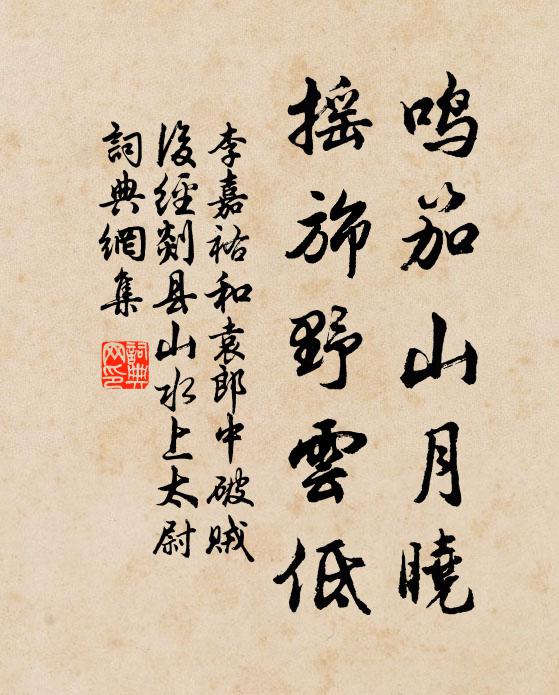 鸣笳山月曉
摇斾野雲低
李嘉祐和袁郎中破贼
後經剡县山水上太尉
詞典網集
詞典网印